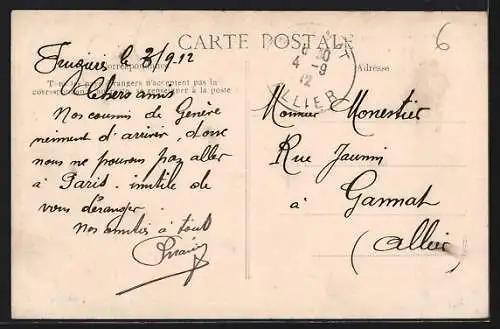 CARTE POSTALE
6
le 3/9.12
Correspondance
Adresse
Tous les pays étrangers n'acceptent pas la
correspondance se renseigner à la poste
Chers amis
Nos cousins de Genève
viennent d'arriver, donc
nous ne pouvons pas aller
à Paris. inutile de
vous déranger.
Nos amitiés à tous
30
4-9
12
ALLIER
Monsieur Monestier
Rue Jaunin
à Gannat
(Allier)